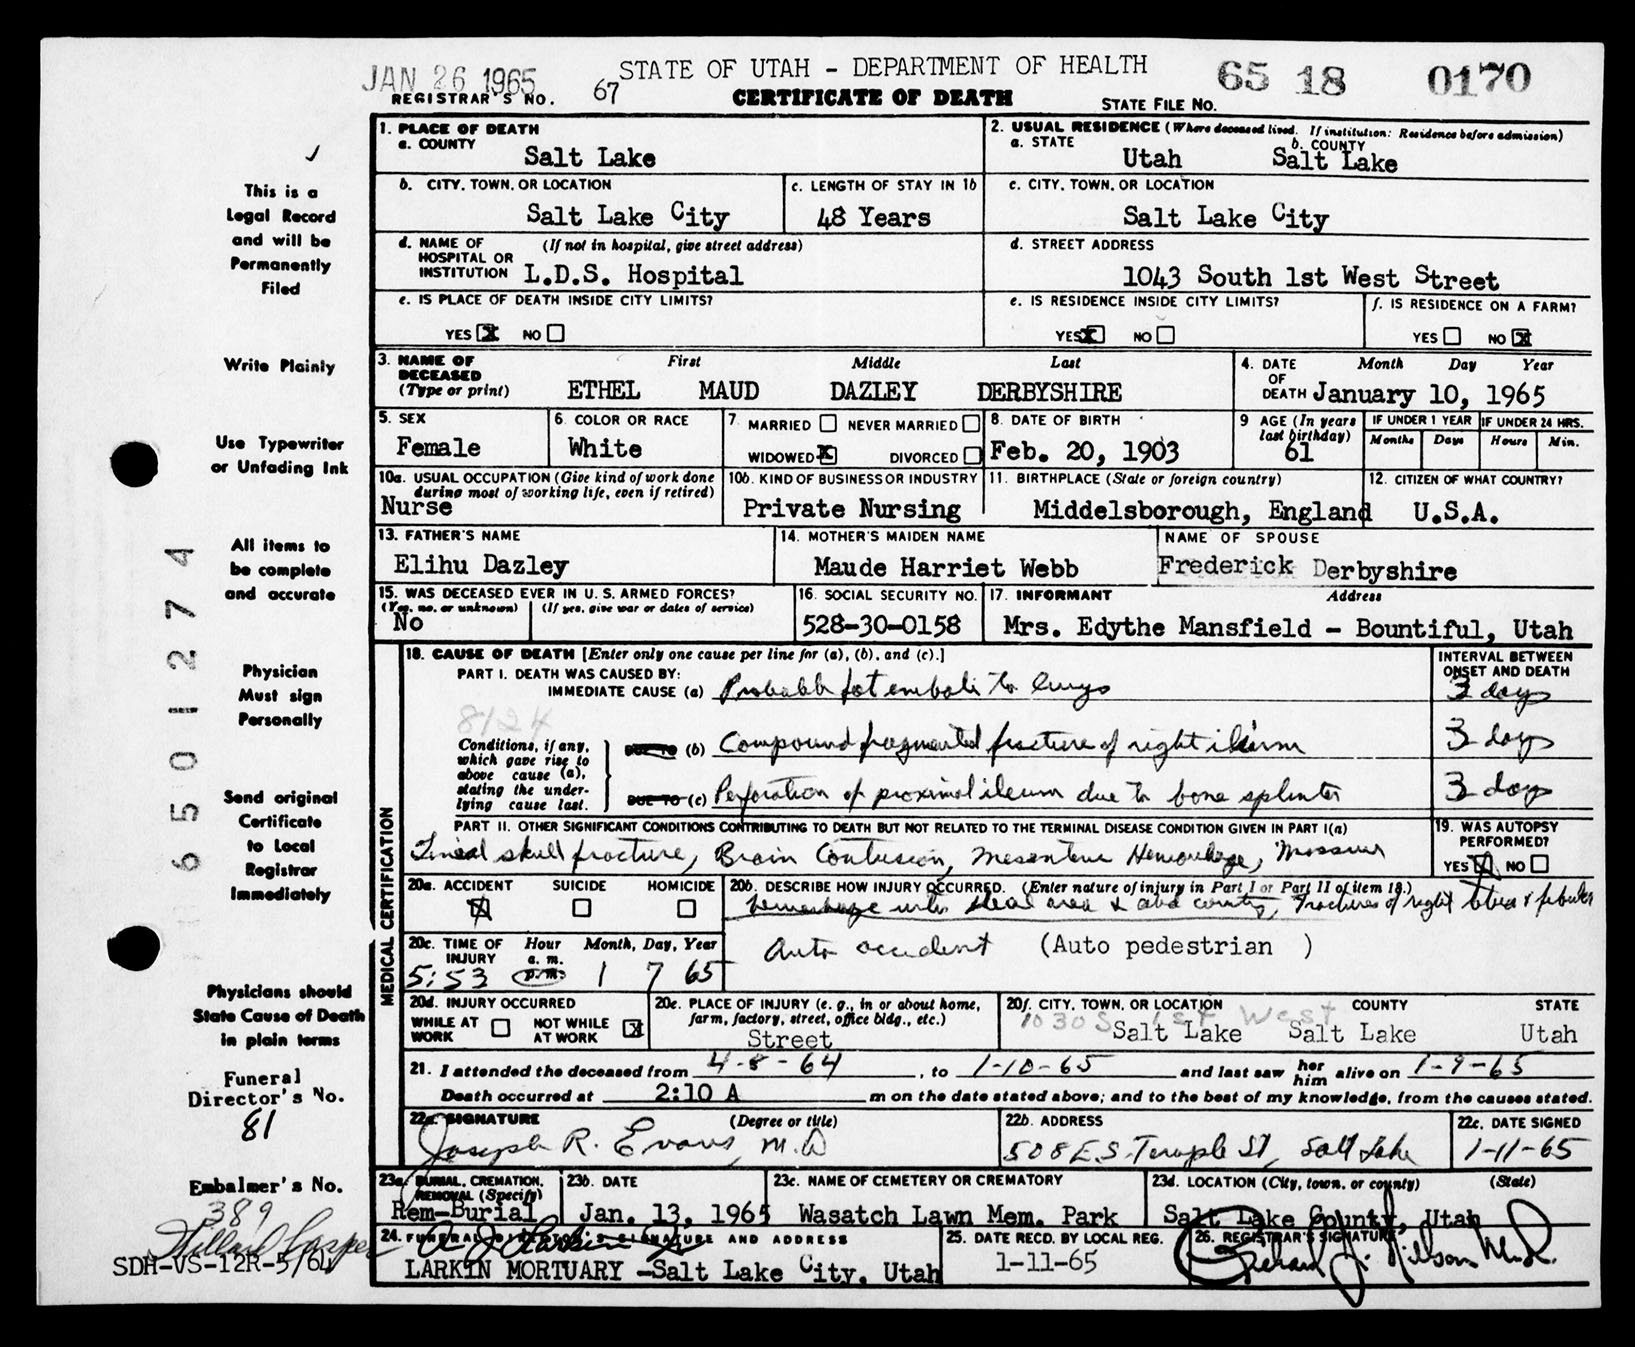 JAN 26 1965
STATE OF UTAH - DEPARTMENT OF HEALTH
65 18 0170
REGISTRAR'S NO. 67
CERTIFICATE OF DEATH
STATE FILE NO.
1. PLACE OF DEATH
a. COUNTY
Salt Lake
2. USUAL RESIDENCE (Where deceased lived. If institution: Residence before admission)
a. STATE
Utah
b. COUNTY
Salt Lake
b. CITY, TOWN, OR LOCATION
Salt Lake City
c. LENGTH OF STAY IN 1b
48 Years
c. CITY, TOWN, OR LOCATION
Salt Lake City
d. NAME OF HOSPITAL OR INSTITUTION
(If not in hospital, give street address)
L.D.S. Hospital
d. STREET ADDRESS
1043 South 1st West Street
e. IS PLACE OF DEATH INSIDE CITY LIMITS?
YES X NO
e. IS RESIDENCE INSIDE CITY LIMITS?
YES X NO
f. IS RESIDENCE ON A FARM?
YES NO X
3. NAME OF DECEASED (Type or print)
First Middle Last
ETHEL MAUD DAZLEY DERBYSHIRE
4. DATE OF DEATH
Month Day Year
January 10, 1965
5. SEX
Female
6. COLOR OR RACE
White
7. MARRIED NEVER MARRIED
WIDOWED X DIVORCED
8. DATE OF BIRTH
Feb. 20, 1903
9 AGE (In years last birthday)
61
IF UNDER 1 YEAR
Months Days
IF UNDER 24 HRS.
Hours Min.
10a. USUAL OCCUPATION (Give kind of work done during most of working life, even if retired)
Nurse
10b. KIND OF BUSINESS OR INDUSTRY
Private Nursing
11. BIRTHPLACE (State or foreign country)
Middelsborough, England
12. CITIZEN OF WHAT COUNTRY?
U.S.A.
13. FATHER'S NAME
Elihu Dazley
14. MOTHER'S MAIDEN NAME
Maude Harriet Webb
NAME OF SPOUSE
Frederick Derbyshire
15. WAS DECEASED EVER IN U. S. ARMED FORCES?
(Yes, no, or unknown) (If yes, give war or dates of service)
No
16. SOCIAL SECURITY NO.
528-30-0158
17. INFORMANT Address
Mrs. Edythe Mansfield - Bountiful, Utah
MEDICAL CERTIFICATION
18. CAUSE OF DEATH [Enter only one cause per line for (a), (b), and (c).]
INTERVAL BETWEEN ONSET AND DEATH
PART I. DEATH WAS CAUSED BY:
IMMEDIATE CAUSE (a) Probable fat emboli to lungs
3 days
8124
Conditions, if any, which gave rise to above cause (a), stating the underlying cause last.
DUE TO (b) Compound fragmented fracture of right ilium
3 days
DUE TO (c) Perforation of proximal ileum due to bone splinter
3 days
PART II. OTHER SIGNIFICANT CONDITIONS CONTRIBUTING TO DEATH BUT NOT RELATED TO THE TERMINAL DISEASE CONDITION GIVEN IN PART I(a)
Lineal skull fracture, Brain Contusion, Mesenteric Hemorrhage, Massive
19. WAS AUTOPSY PERFORMED?
YES X NO
20a. ACCIDENT SUICIDE HOMICIDE
X
20b. DESCRIBE HOW INJURY OCCURRED. (Enter nature of injury in Part I or Part II of item 18.)
hemorrhage into ileal area & abd cavity, Fractures of right tibia & fibula
Auto accident (Auto pedestrian )
20c. TIME OF INJURY
Hour a. m. p. m. Month, Day, Year
5:53 1 7 65
20d. INJURY OCCURRED
WHILE AT WORK NOT WHILE AT WORK X
20e. PLACE OF INJURY (e. g., in or about home, farm, factory, street, office bldg., etc.)
Street
20f. CITY, TOWN, OR LOCATION COUNTY STATE
1030 S 1st West
Salt Lake Salt Lake Utah
21. I attended the deceased from 4-8-64, to 1-10-65 and last saw her him alive on 1-9-65
Death occurred at 2:10 A m on the date stated above; and to the best of my knowledge, from the causes stated.
22a. SIGNATURE (Degree or title)
Joseph R. Evans, M.D
22b. ADDRESS
508 E. S. Temple St, Salt Lake
22c. DATE SIGNED
1-11-65
23a. BURIAL, CREMATION, REMOVAL (Specify)
Rem-Burial
23b. DATE
Jan. 13, 1965
23c. NAME OF CEMETERY OR CREMATORY
Wasatch Lawn Mem. Park
23d. LOCATION (City, town, or county) (State)
Salt Lake County, Utah
24. FUNERAL DIRECTOR'S SIGNATURE AND ADDRESS
LARKIN MORTUARY -Salt Lake City, Utah
25. DATE RECD. BY LOCAL REG.
1-11-65
26. REGISTRAR'S SIGNATURE
This is a
Legal Record
and will be
Permanently
Filed
Write Plainly
Use Typewriter
or Unfading Ink
All items to
be complete
and accurate
Physician
Must sign
Personally
Send original
Certificate
to Local
Registrar
Immediately
Physicians should
State Cause of Death
in plain terms
Funeral
Director's No.
81
Embalmer's No.
389
SDH-VS-12R-5/64
6501274